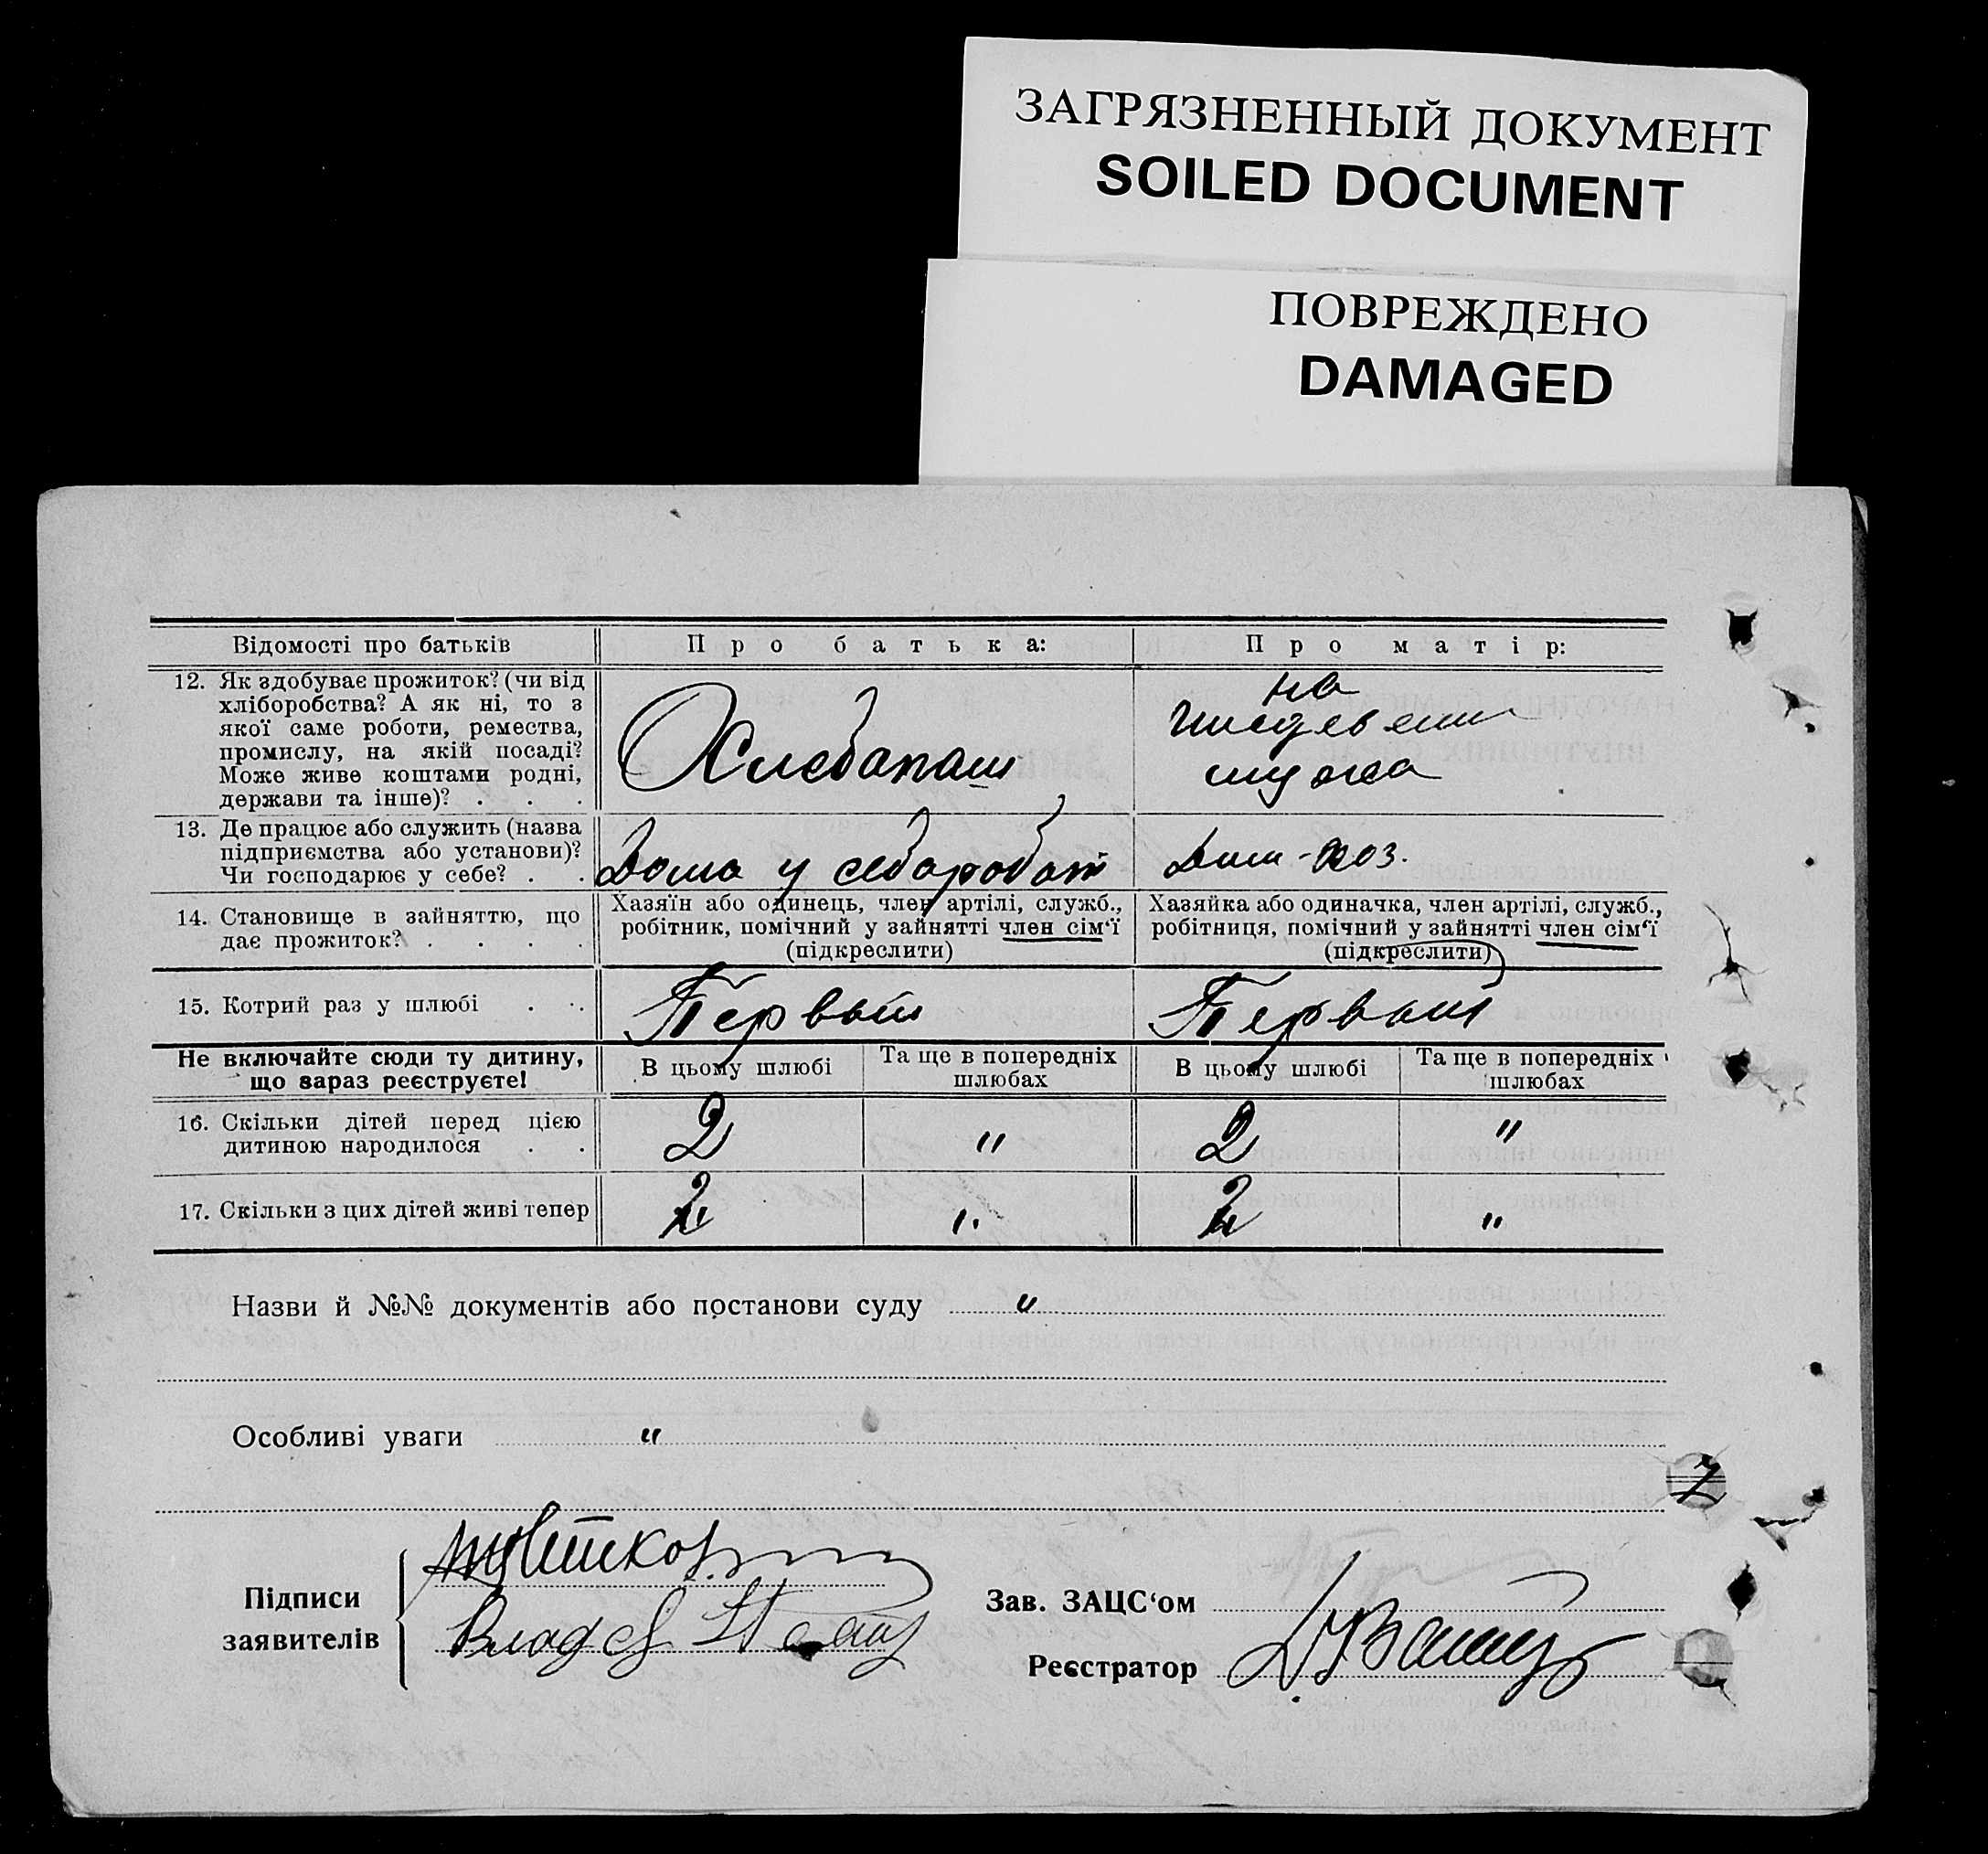 ЗАГРЯЗНЕННЫЙ ДОКУМЕНТ
SOILED DOCUMENT
ПОВРЕЖДЕНО
DAMAGED
Відомості про батьків
Про батька:
Про матір:
12. Як здобуває прожиток? (чи від
хліборобства? А як ні, то з
якої саме роботи, ремества,
промислу, на якій посаді?
Може живе коштами родні,
держави та інше)? . . .
Хлебапаш
на
иждевении
мужа
13. Де працює або служить (назва
підприємства або установи)?
Чи господарює у себе? . .
Дома у себа
Дом-хоз.
14. Становище в зайняттю, що
дає прожиток? . . . .
Хазяїн або одинець, член артілі, служб.,
робітник, помічний у зайнятті член сім‘ї
(підкреслити)
Хазяйка або одиначка, член артілі, служб.,
робітниця, помічний у зайнятті член сім‘ї
(підкреслити)
15. Котрий раз у шлюбі . .
Первый
Первый
Не включайте сюди ту дитину,
що зараз реєструєте!
В цьому шлюбі
Та ще в попередніх
шлюбах
В цьому шлюбі
Та ще в попередніх
шлюбах
16. Скільки дітей перед цією
дитиною народилося . .
2 " 2 "
17. Скільки з цих дітей живі тепер
2 " 2 "
Назви й №№ документів або постанови суду "
Особливі уваги "
Підписи
заявителів
Зав. ЗАЦС‘ом
Реєстратор